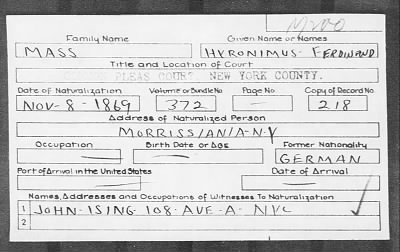 M200
Family Name Given Name or Names
MASS HYRONIMUS FERDINAND
Title and Location of Court
PLEAS COURT, NEW YORK COUNTY.
Date of Naturalization Volume or Bundle No Page No Copy of Record No
NOV-8-1869 372 — 218
Address of Naturalized Person
MORRISSIANIA-N-Y
Occupation Birth Date or Age Former Nationality
— — GERMAN
Port of Arrival in the United States Date of Arrival
— —
Names, Addresses and Occupations of Witnesses To Naturalization
1 JOHN-ISING-108-AVE-A-NYC
2